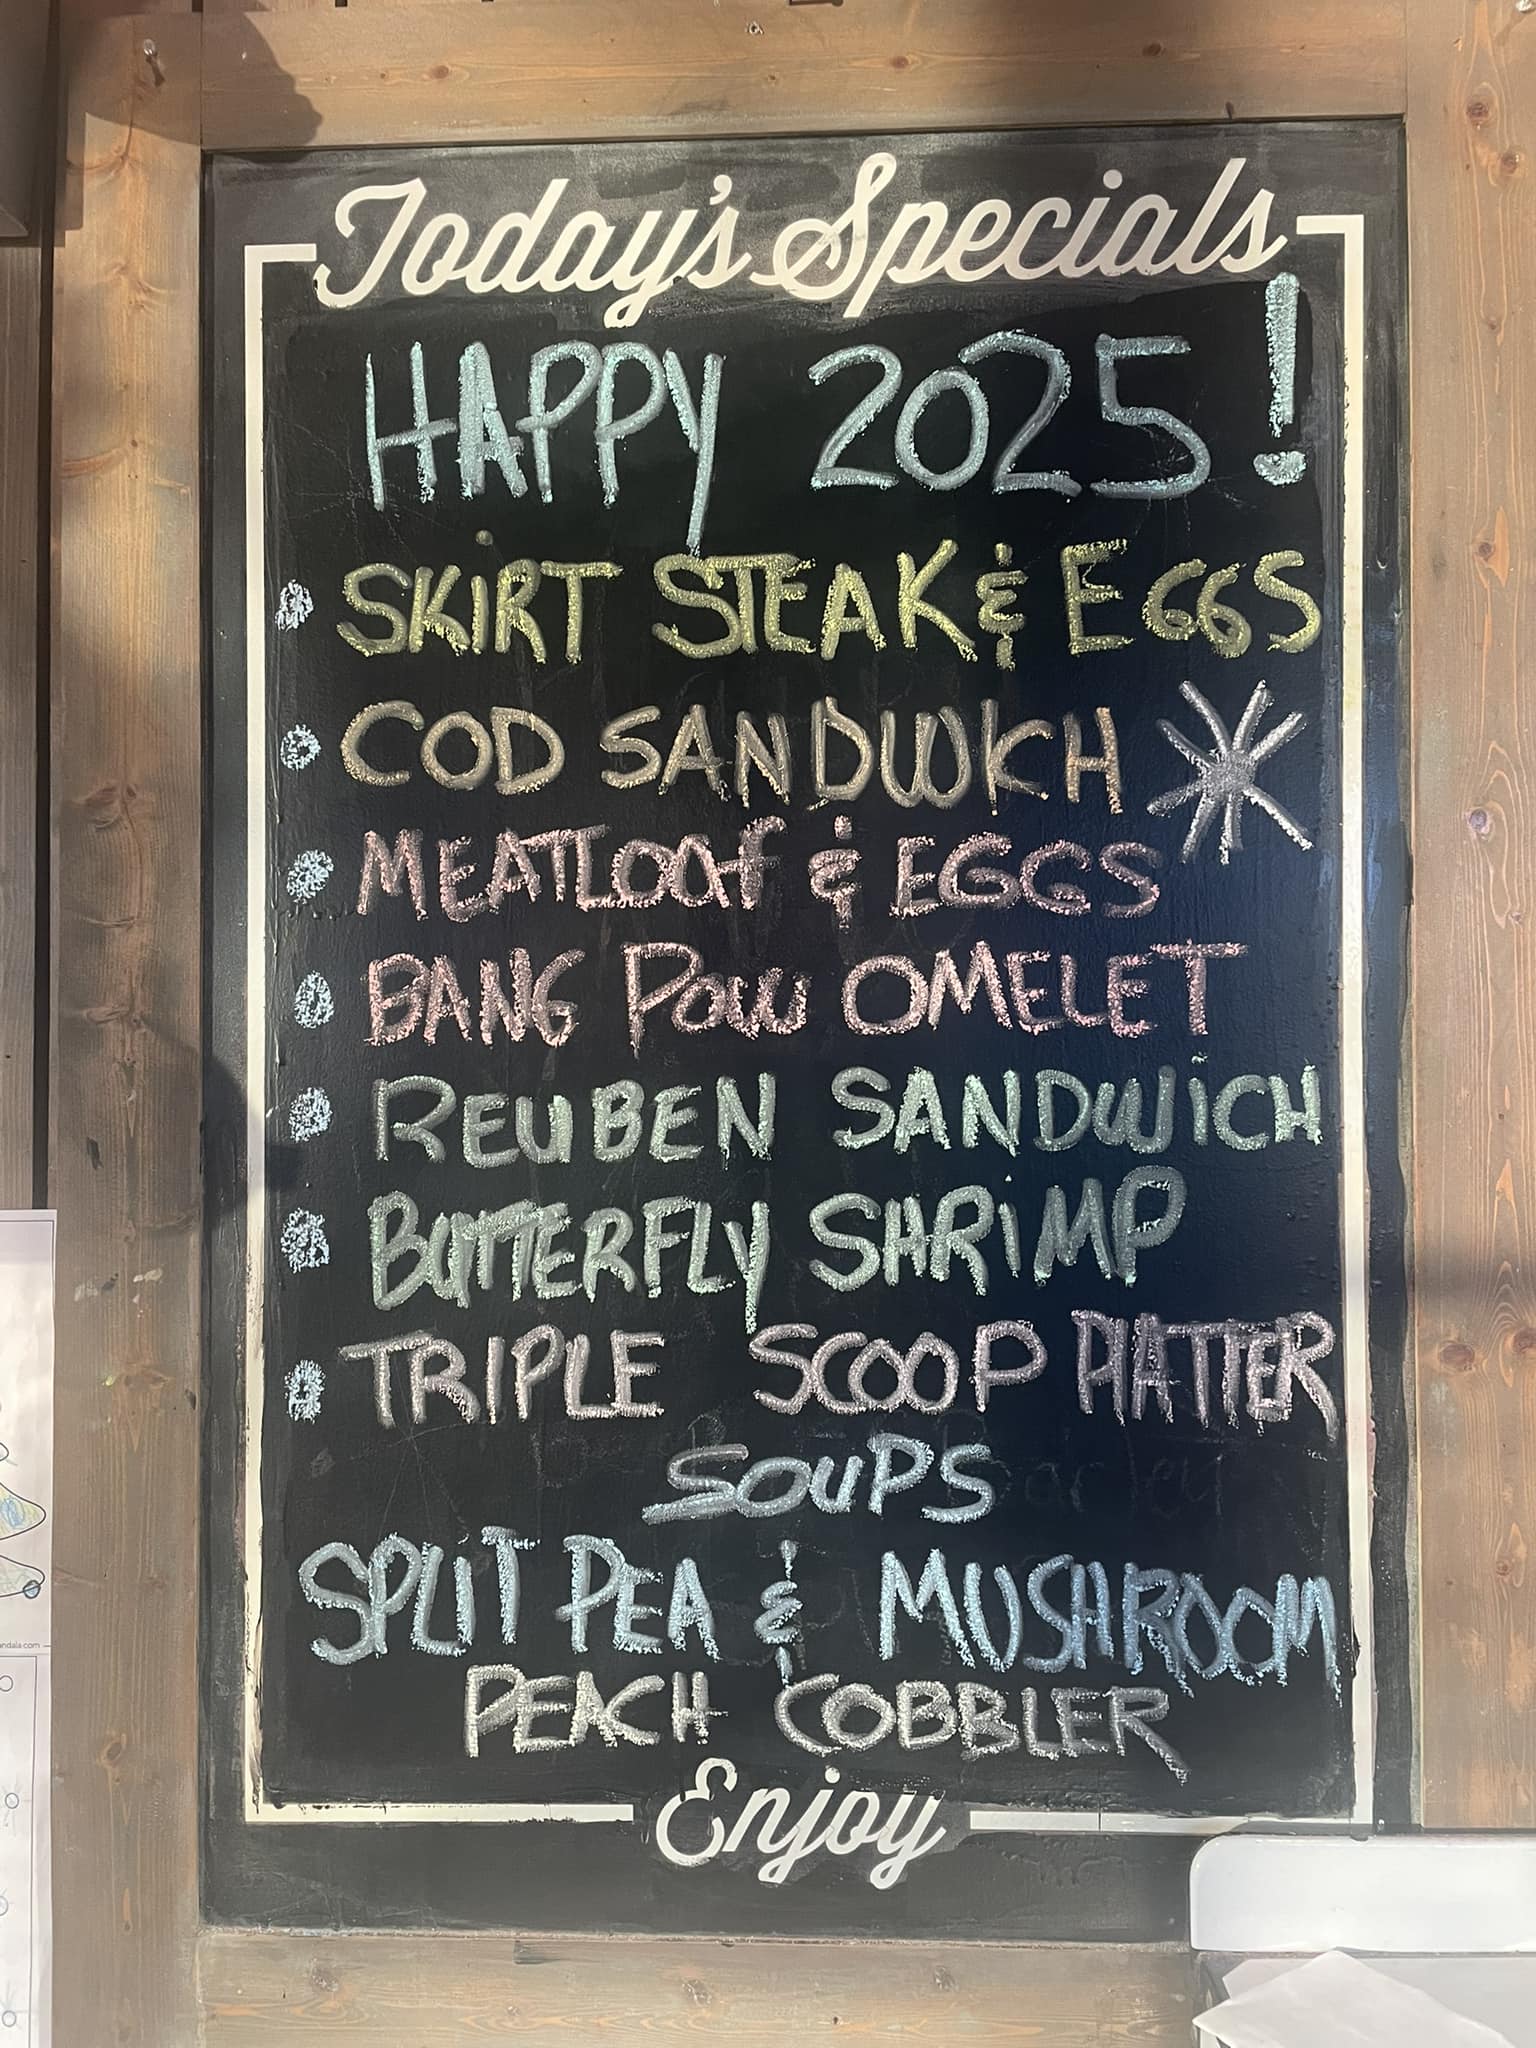 Today's Specials
HAPPY 2025!
SKiRT STEAK & EGGS
COD SANDWICH
MEATLOAf & EGGS
BANG POW OMELET
REUBEN SANDWiCH
BUTTERFLY SHRiMP
TRIPLE SCOOP PLATTER
SOUPS
SPLIT PEA & MUSHROOM
PEACH COBBLER
Enjoy
andala.com